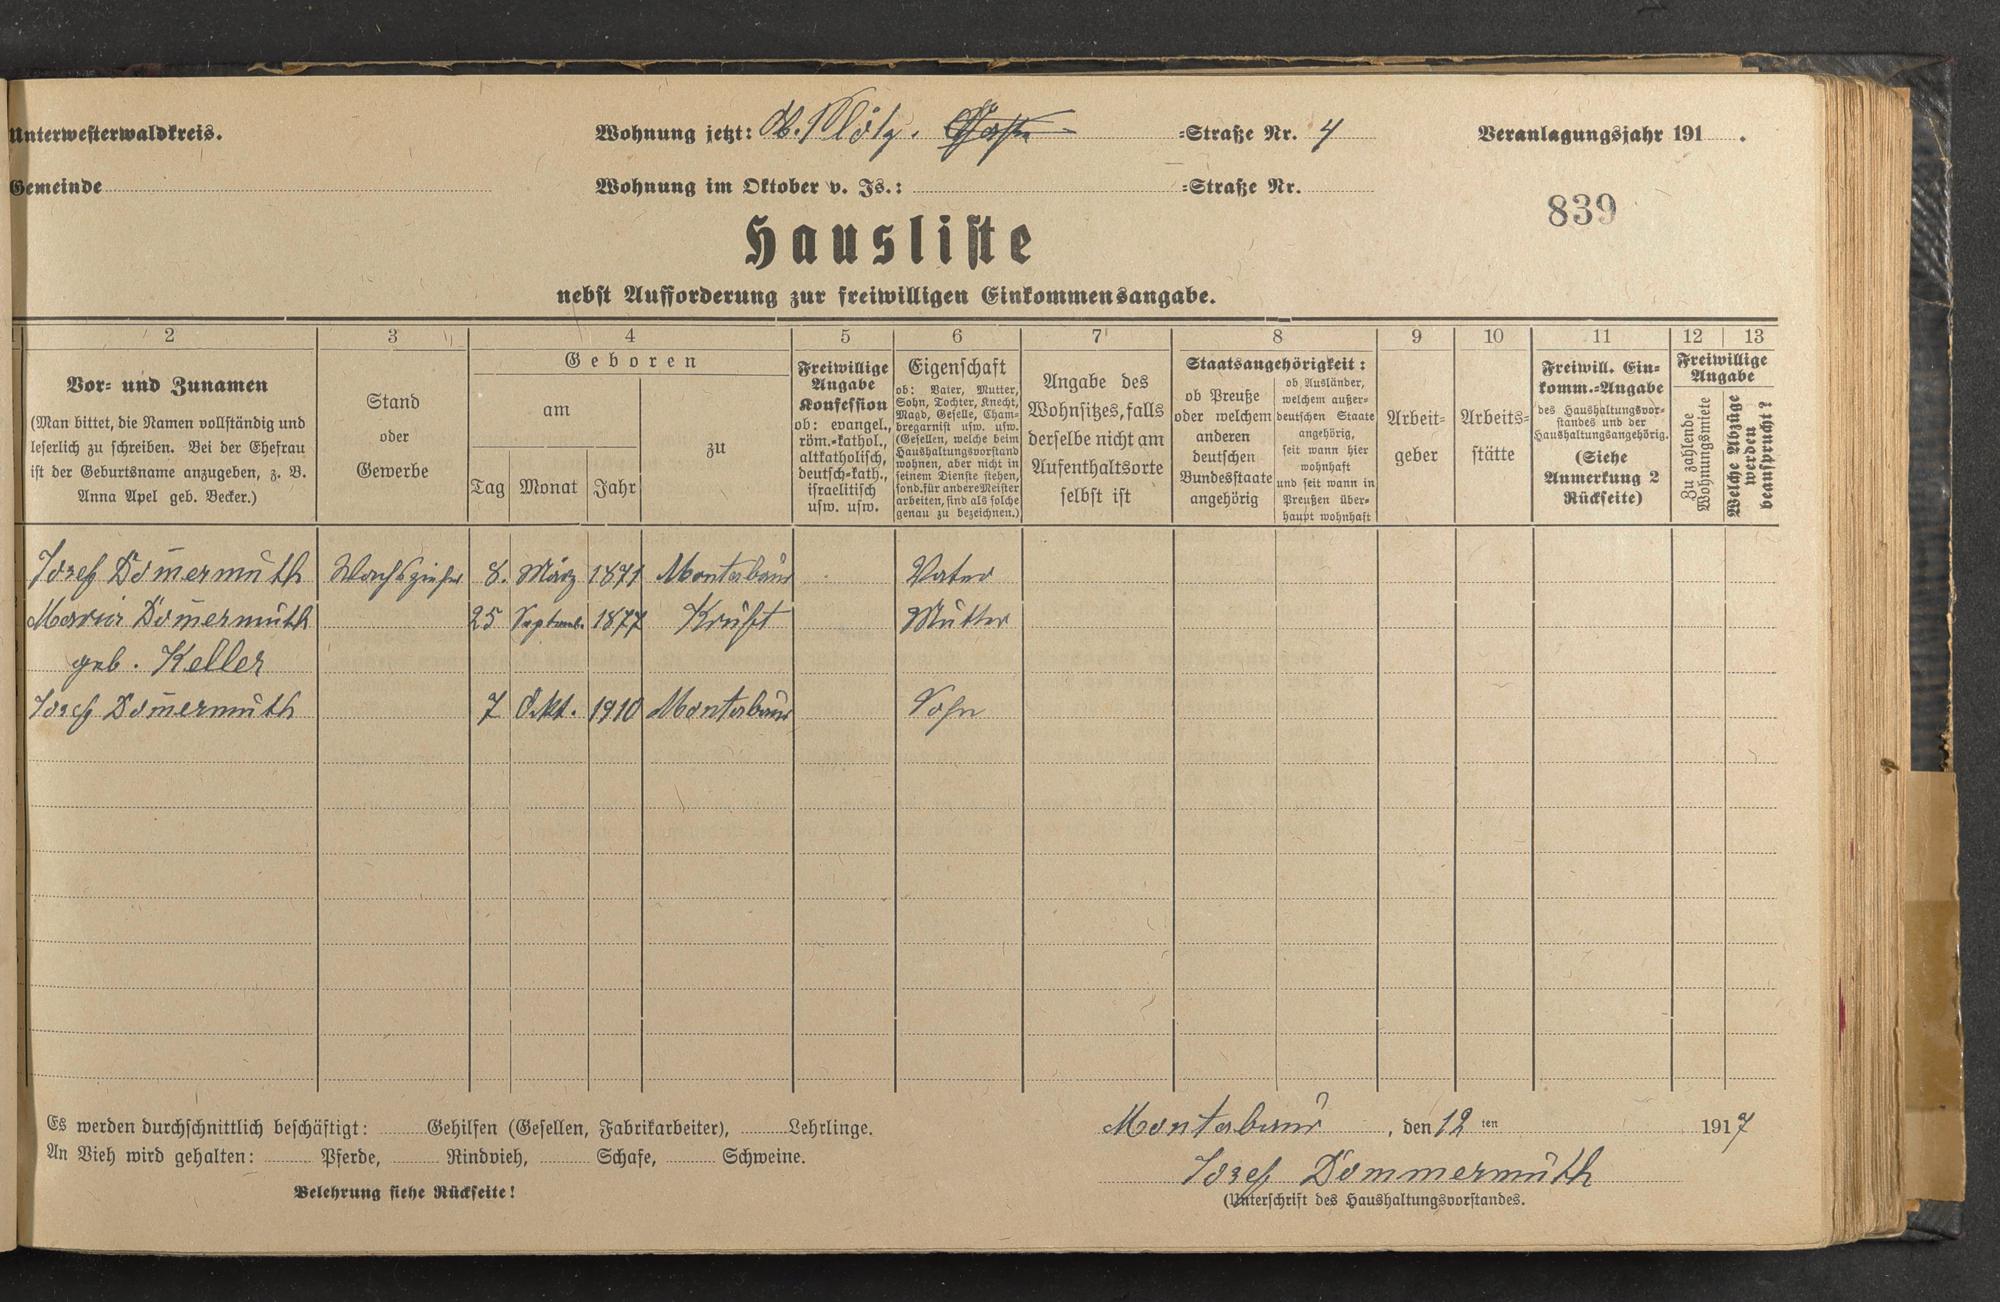 Unterwesterwaldkreis. Wohnung jetzt: Ob. Plötz. =Straße Nr. 4 Veranlagungsjahr 191 .
Gemeinde Wohnung im Oktober v. Js.: =Straße Nr.
839
Hausliste
nebst Aufforderung zur freiwilligen Einkommensangabe.
2 3 4 5 6 7 8 9 10 11 12 13
Vor= und Zunamen
(Man bittet, die Namen vollständig und
leserlich zu schreiben. Bei der Ehefrau
ist der Geburtsname anzugeben, z. B.
Anna Apel geb. Becker.)
Stand
oder
Gewerbe
Geboren
am
Tag Monat Jahr
zu
Freiwillige
Angabe
Konfession
ob: evangel.,
röm.=kathol.,
altkatholisch,
deutsch=kath.,
israelitisch
usw. usw.
Eigenschaft
ob: Vater, Mutter,
Sohn, Tochter, Knecht,
Magd, Geselle, Cham=
bregarnist usw. usw.
(Gesellen, welche beim
Haushaltungsvorstand
wohnen, aber nicht in
seinem Dienste stehen,
sond. für andere Meister
arbeiten, sind als solche
genau zu bezeichnen.)
Angabe des
Wohnsitzes, falls
derselbe nicht am
Aufenthaltsorte
selbst ist
Staatsangehörigkeit:
ob Preuße
oder welchem
anderen
deutschen
Bundesstaate
angehörig
ob Ausländer,
welchem außer=
deutschen Staate
angehörig,
seit wann hier
wohnhaft
und seit wann in
Preußen über=
haupt wohnhaft
Arbeit=
geber
Arbeits=
stätte
Freiwill. Ein=
komm.=Angabe
des Haushaltungsvor=
standes und der
Haushaltungsangehörig.
(Siehe
Anmerkung 2
Rückseite)
Freiwillige
Angabe
Zu zahlende
Wohnungsmiete
Welche Abzüge
werden
beansprucht?
Josef Dom̄ermuth Wachszieher 8. März 1871 Montabaur Vater
Maria Dom̄ermuth 25 Septemb. 1877 Kruft Mutter
geb. Keller
Josef Dom̄ermuth 7 Okt. 1910 Montabaur Sohn
Es werden durchschnittlich beschäftigt: Gehilfen (Gesellen, Fabrikarbeiter), Lehrlinge.
An Vieh wird gehalten: Pferde, Rindvieh, Schafe, Schweine.
Belehrung siehe Rückseite!
Montabaur, den 12 ten 1917
Josef Dommermuth
(Unterschrift des Haushaltungsvorstandes.